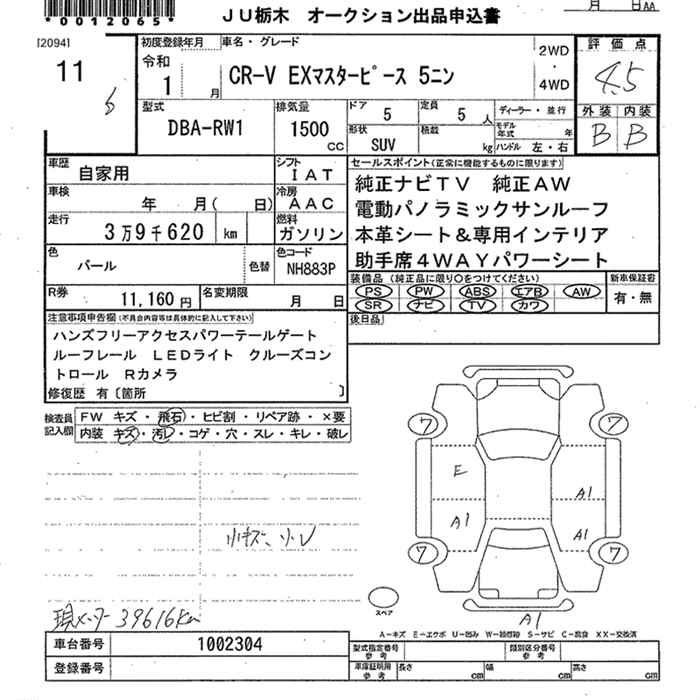 *0012065*
JU栃木 オークション出品申込書
月 日AA
[2094]
11
6
初度登録年月
令和
1 月
車名・グレード
CR-V EXマスターピース 5ニン
2WD
・
4WD
評価点
4.5
外装 内装
B B
型式
DBA-RW1
排気量
1500
CC
ドア
5
定員
5 人
形状
SUV
積載
kg
ディーラー・並行
モデル年式 年
ハンドル 左・右
車歴
自家用
シフト
IAT
車検
年 月( 日)
冷房
AAC
走行
3万9千620 km
燃料
ガソリン
色
パール
色替
色コード
NH883P
R券
11,160円
名変期限
月 日
セールスポイント(正常に機能するものに限ります)
純正ナビTV 純正AW
電動パノラミックサンルーフ
本革シート&専用インテリア
助手席4WAYパワーシート
装備品 (純正品に限り○をつけてください)
PS PW ABS エアB AW
SR ナビ TV カワ
新車保証書
有・無
後日品
注意事項申告欄(不具合内容等は具体的に記入して下さい)
ハンズフリーアクセスパワーテールゲート
ルーフレール LEDライト クルーズコン
トロール Rカメラ
修復歴 有〔箇所 〕
検査員記入欄
FW キズ・飛石・ヒビ割・リペア跡・×要
内装 キズ・汚レ・コゲ・穴・スレ・キレ・破レ
小キズ、
現メーター 39616km
7 7
E
A1
A1 A1
7 7
スペア
A1
A-キズ E-エクボ U-凹み W-補修跡 S-サビ C-腐食 XX-交換済
車台番号
1002304
登録番号
型式指定番号
参考
類別区分番号
参考
車庫証明用
参考
長さ cm
幅 cm
高さ cm